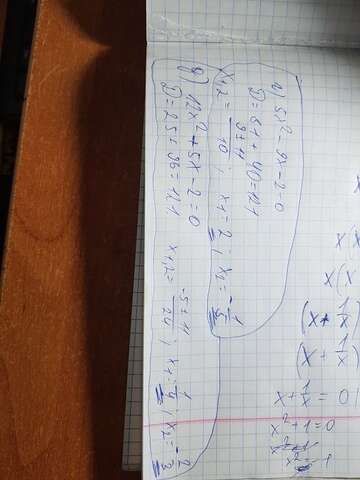 a) 5x² - 9x - 2 = 0
D = 81 + 40 = 121
x₁,₂ = (9 ± 11)/10 ; x₁ = 2 ; x₂ = -1/5
g) 12x² + 5x - 2 = 0
D = 25 + 96 = 121 x₁,₂ = (-5 ± 11)/24 ; x₁ = 1/4 ; x₂ = -2/3
x + 1/x = 0
x² + 1 = 0
x² = -1